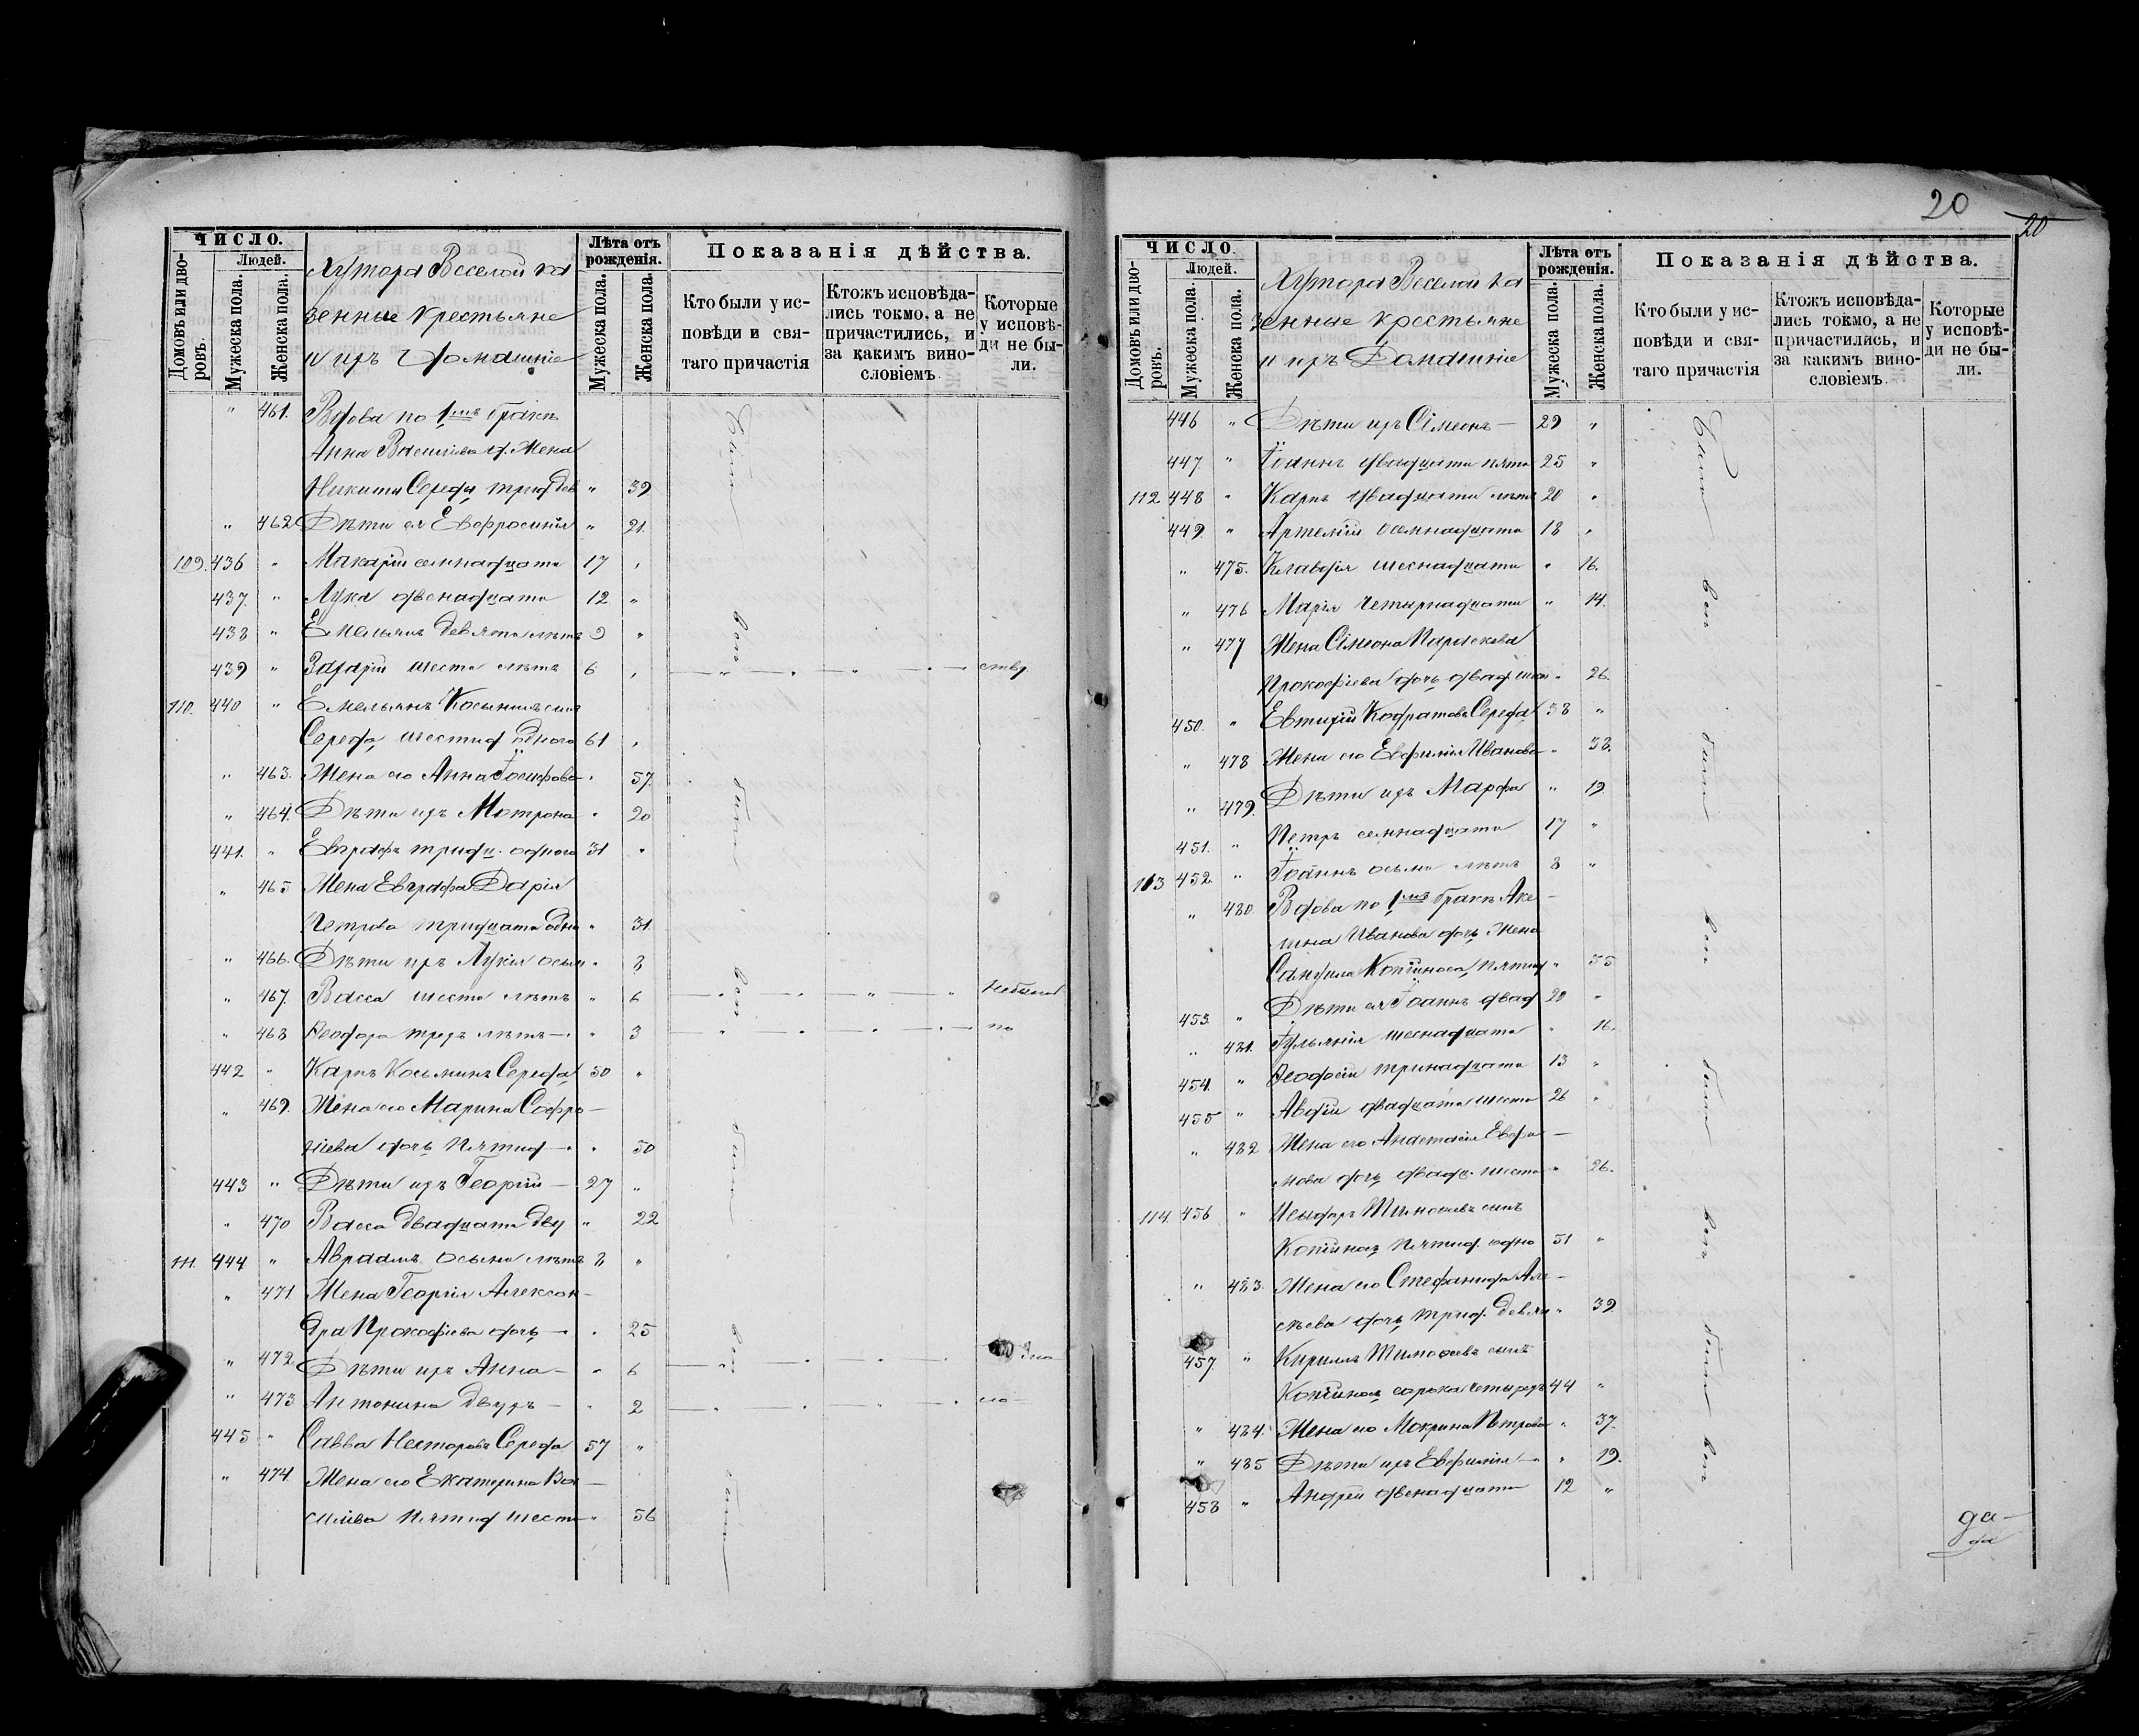 ЧИСЛО.
Людей.
Домовъ или дво-
ровъ.
Мужеска пола.
Женска пола.
Хутора Веселой ка
зенные крестьяне
и ихъ Домашніе
Лѣта отъ
рожденія.
Мужеска пола.
Женска пола.
Показанія дѣйства.
Кто были у ис-
повѣди и свя-
таго причастія
Ктожъ исповѣда-
лись токмо, а не
причастились, и
за какимъ вино-
словіемъ
Которые
у исповѣ-
ди не бы-
ли.
" 461. Вдова по 1мъ бракѣ
Анна д. Жена
Никиты Середы " 39
" 462 Дѣти ея Евфросинія " 21.
109. 436 " Макарій семнадцати 17 "
437. " Лука двенадцати 12 "
438 " Емельянъ девяти лѣтъ 9 "
439 " Захарій шести лѣтъ 6 "
110. 440 " Емельянъ
Середа, шестид. одного 61 "
" 463. Жена его Анна Іосифова " 57.
" 464. Дѣти ихъ Мотрона " 20
441. " Евграфъ тридц. одного 31 "
" 465 Жена Евграфа Дарія
Петрова тридцати одно " 31.
" 466. Дѣти ихъ Лукія осьми " 8
" 467. Васса шести лѣтъ " 6
" 468 Ѳеодора трехъ лѣтъ — " 3 по
442 " Карпъ Косьминъ Середа 50 "
" 469. Жена его Марина Софро —
ніева дочь пятид — " 50
443 " Дѣти ихъ Георгій — 27 "
" 470 Васса двадцати дву " 22
111. 444 " Авраамъ осьми лѣтъ 8 "
" 471. Жена Георгія Алексан —
дра Прокофіева дочь — " 25
" 472. Дѣти ихъ Анна — " 6
" 473 Антонина двухъ — " 2
445 " Савва Несторовъ Середа 57 "
" 474. Жена его Екатерина Ва —
силіева пятид шести " 56
Были всѣ были всѣ были всѣ были
20
20
ЧИСЛО.
Людей.
Домовъ или дво-
ровъ.
Мужеска пола.
Женска пола.
Хутора Веселой ка
зенные крестьяне
и ихъ Домашніе
Лѣта отъ
рожденія.
Мужеска пола.
Женска пола.
Показанія дѣйства.
Кто были у ис-
повѣди и свя-
таго причастія
Ктожъ исповѣда-
лись токмо, а не
причастились, и
за какимъ вино-
словіемъ
Которые
у исповѣ-
ди не бы-
ли.
446 " Дѣти ихъ Сімеонъ — 29 "
447 " Іоаннъ двадцати пяти 25 "
112 448 " Карпъ двадцати лѣтъ 20 "
449. " Артемій осемнадцати 18 "
" 475. Клавдія шеснадцати " 16.
" 476 Марія четырнадцати " 14.
" 477 Жена Сімеона Параскева
Прокофіева дочь двад шести " 26.
450. " Евтихій Кодратовъ Середа 38 "
" 478 Жена его Евфимія Иванова " 38.
" 479. Дѣти ихъ Марфа " 19
451. " Петръ семнадцати 17 "
113 452 " Іоаннъ осьми лѣтъ 8 "
" 480. Вдова по 1мъ бракѣ Аке —
лина Иванова дочь, Жена
Самуила пятид " 55
453. " Дѣти ея Іоаннъ двад 20 "
" 481. Іульянія шеснадцати " 16.
454. " Ѳеодосій тринадцати 13 "
455 " Авдій двадцати шести 26 "
" 482 Жена его Анастасія Евфи —
мова дочь двадц. шести " 26.
114. 456 " Тимоѳеевъ сынъ
пятид. одно 51 "
" 483. Жена его Стефанида Але —
ксѣева дочь трид. девяти " 39.
457. " Кириллъ Тимоѳеевъ сынъ
сорока четырехъ 44 "
" 484. Жена его Мокрина Петрова " 37.
" 485 Дѣти ихъ Евфимія — " 19.
458 " Андрей двенадцати 12 "
Были всѣ были всѣ были всѣ были всѣ
да —